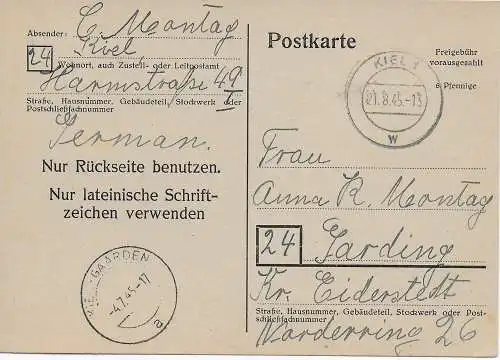 Absender: C. Montag
Kiel,
24 Wohnort, auch Zustell- oder Leitpostamt
Harmstraße 49 I
Straße, Hausnummer, Gebäudeteil, Stockwerk oder
Postschließfachnummer
German.
Nur Rückseite benutzen.
Nur lateinische Schrift-
zeichen verwenden
KIEL-GAARDEN
-4.7.45.-17
a
Postkarte
Freigebühr
vorausgezahlt
6 Pfennige
KIEL 1
21.8.45.-13
w
Frau
Anna K. Montag
24 Garding
Kr. Eiderstedt
Straße, Hausnummer, Gebäudeteil, Stockwerk oder Post-
schließfachnummer
Norderring 26